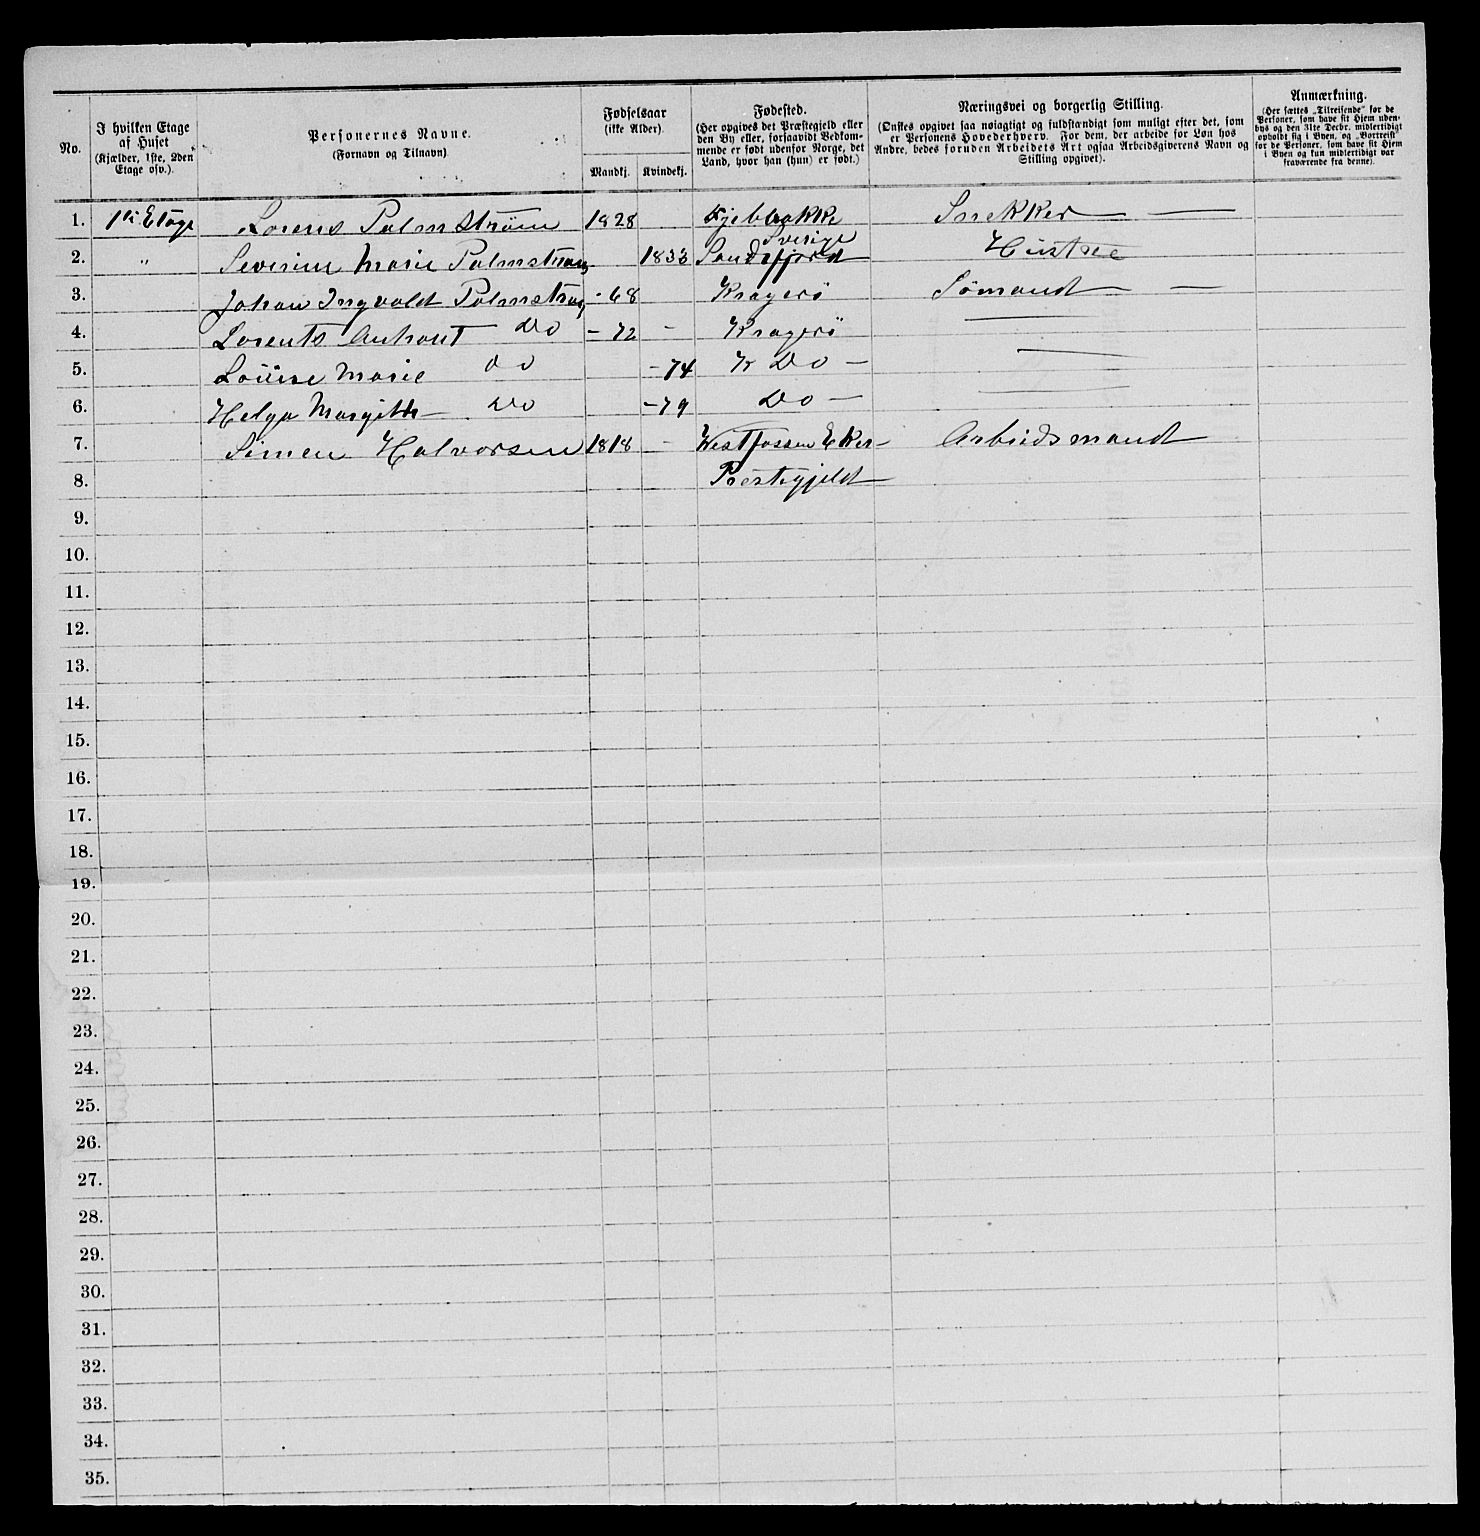 No.
I hvilken Etage af Huset (Kjælder, 1ste, 2den Etage osv.).
Personernes Navne. (Fornavn og Tilnavn)
Fødselsaar (ikke Alder).
Mandkj. Kvindekj.
Fødested. (Her opgives det Præstegjeld eller den By eller, forsaavidt Vedkommende er født udenfor Norge, det Land, hvor han (hun) er født.)
Næringsvei og borgerlig Stilling. (Ønskes opgivet saa nøiagtigt og fuldstændigt som muligt efter det, som er Personens Hovederhverv. For dem, der arbeide for Løn hos Andre, bedes foruden Arbeidets Art ogsaa Arbeidsgiverens Navn og Stilling opgivet).
Anmærkning. (Her sættes „Tilreisende" for de Personer, som have sit Hjem udenbys og den 31te Decbr. midlertidigt opholdt sig i Byen, og „Bortreist" for de Personer, som have sit Hjem i Byen og kun midlertidigt var fraværende fra denne).
1. 1ste Etage Lorens Palmstrøm 1828 Sverige Snekker
2. " Severine Marie Palmstrøm 1833 Sandefjord Hustru
3. Johan Ingvald Palmstrøm -68 Kragerø Sømand
4. Lorents Anthont Do -72 - Kragerø
5. Louise Marie Do -74 K Do -
6. Helga Margith Do -79 Do -
7. Simen Halvorsen 1818 - Westfossen Eker Arbeidsmand
8. Præstegjeld
9.
10.
11.
12.
13.
14.
15.
16.
17.
18.
19.
20.
21.
22.
23.
24.
25.
26.
27.
28.
29.
30.
31.
32.
33.
34.
35.